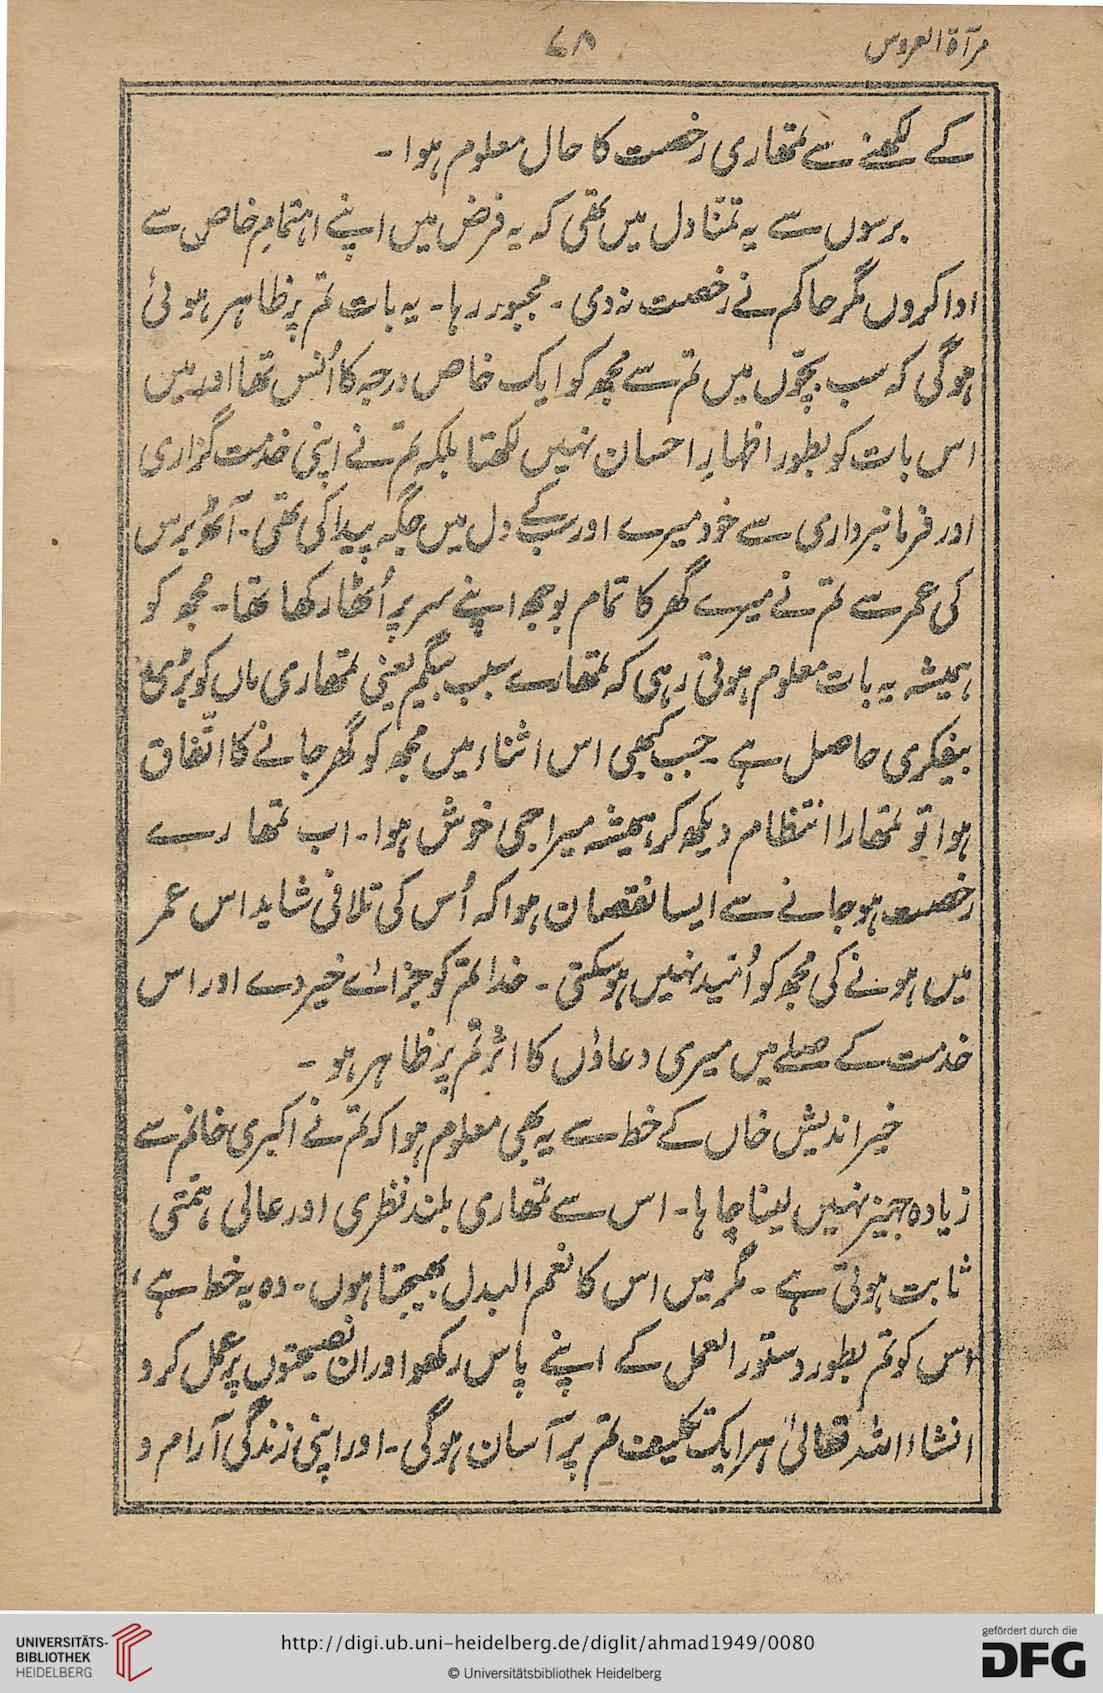 مرآۃ العروس
۷۸
کے لکھنے سے تمھاری رخصت کا حال معلوم ہوا -
برسوں سے یہ تمنّا دل میں تھی کہ یہ فرض میں اپنے اہتمامِ خاص سے
ادا کروں مگر حاکم نے رخصت نہ دی - مجبور رہا - یہ بات تم پر ظاہر ہوئی
ہوگی کہ سب بچّوں میں تم سے مجھ کو ایک خاص درجہ کا اُنس تھا اور میں
اس بات کو بطور اظہارِ احسان نہیں لکھتا بلکہ تم نے اپنی خدمت گزاری
اور فرمانبرداری سے خود میرے اور سب کے دل میں جگہ پیدا کی تھی - آٹھ برس
کی عمر سے تم نے میرے گھر کا تمام بوجھ اپنے سر پر اُٹھا رکھا تھا - مجھ کو
ہمیشہ یہ بات معلوم ہوتی رہی کہ تمھارے سبب بیگم یعنی تمھاری ماں کو بڑی
بیفکری حاصل ہے - جب کبھی اس اثناء میں مجھ کو گھر جانے کا اتّفاق
ہوا تو تمھارا انتظام دیکھ کر ہمیشہ میرا جی خوش ہوا - اب تمھارے
رخصت ہو جانے سے ایسا نقصان ہوا کہ اُس کی تلافی شاید اس عمر
میں ہونے کی مجھ کو اُمّید نہیں ہوسکتی - خدا تم کو جزائے خیر دے اور اس
خدمت کے صلے میں میری دعاؤں کا اثر تم پر ظاہر ہو -
خیر اندیش خاں کے خط سے یہ بھی معلوم ہوا کہ تم نے اکبری خانم سے
زیادہ جہیز نہیں لینا چاہا - اس سے تمھاری بلند نظری اور عالی ہمّتی
ثابت ہوتی ہے - مگر میں اس کا نعم البدل بھیجتا ہوں - وہ یہ خط ہے ،
اس کو تم بطور دستور العمل کے اپنے پاس رکھو اور ان نصیحتوں پر عمل کرو
انشاء اللہ تعالیٰ ہر ایک تکلیف تم پر آسان ہوگی - اور اپنی زندگی آرام و
UNIVERSITÄTS-
BIBLIOTHEK
HEIDELBERG
http://digi.ub.uni-heidelberg.de/diglit/ahmad1949/0080
© Universitätsbibliothek Heidelberg
gefördert durch die
DFG